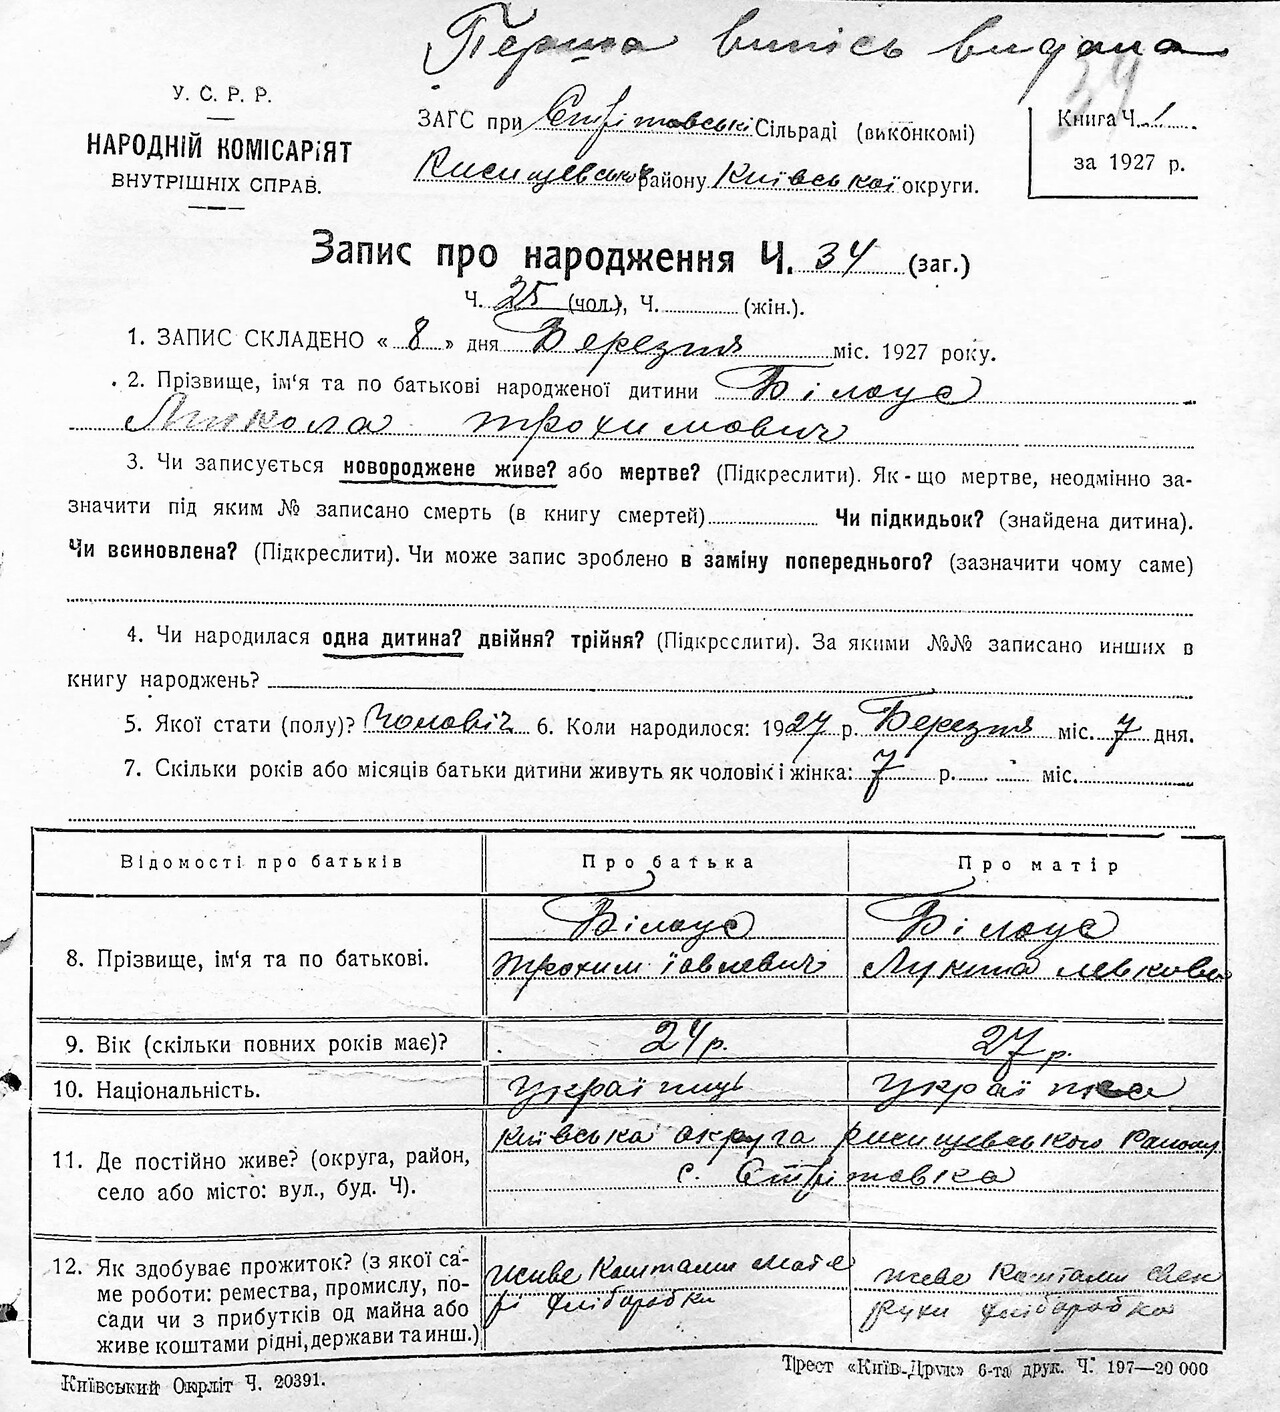 Перша випісь видана
34
У. С. Р. Р.
НАРОДНІЙ КОМІСАРІЯТ
ВНУТРІШНІХ СПРАВ.
ЗАГС при Стрітовські Сільраді (виконкомі)
району Київської округи.
Книга Ч. 1
за 1927 р.
Запис про народження Ч. 34 (заг.)
Ч. 25 (чол.), Ч. (жін.).
1. ЗАПИС СКЛАДЕНО « 8 » дня Березня міс. 1927 року.
2. Прізвище, ім'я та по батькові народженої дитини Білоус
Микола Трохимович
3. Чи записується новороджене живе? або мертве? (Підкреслити). Як-що мертве, неодмінно за-
значити під яким № записано смерть (в книгу смертей) Чи підкидьок? (знайдена дитина).
Чи всиновлена? (Підкреслити). Чи може запис зроблено в заміну попереднього? (зазначити чому саме)
4. Чи народилася одна дитина? двійня? трійня? (Підкреслити). За якими №№ записано инших в
книгу народжень?
5. Якої стати (полу)? Чоловіч 6. Коли народилося: 1927 р. Березня міс. 7 дня.
7. Скільки років або місяців батьки дитини живуть як чоловік і жінка: 7 р. міс.
Відомості про батьків Про батька Про матір
8. Прізвище, ім'я та по батькові.
Білоус Білоус
Трохим Лукина Левковн
9. Вік (скільки повних років має)? 24 р. 27 р.
10. Національність. Українць Українка
11. Де постійно живе? (округа, район,
село або місто: вул., буд. Ч).
Київська округа Ржищевського Району
с. Стрітовка
12. Як здобуває прожиток? (з якої са-
ме роботи: ремества, промислу, по-
сади чи з прибутків од майна або
живе коштами рідні, держави та инш.)
живе Коштами мате
рі хліборобки
живе Коштами свек
рухи хліборобка
Київський Окрліт Ч. 20391.
Трест «Київ-Друк» 6-та друк. Ч. 197—20 000